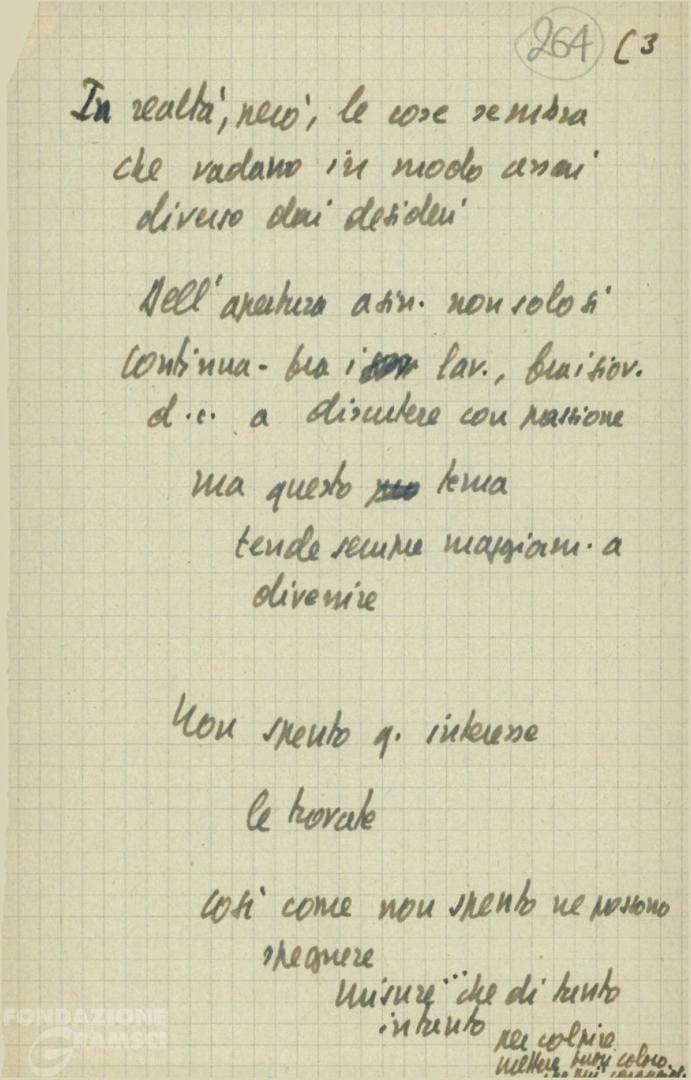 264 C3
In realtà, però, le cose sembra
che vadano in modo assai
diverso dai desideri
Dell'apertura a sin. non solo si
continua - tra i lav., tra i giov.
d.c. a discutere con passione
ma questo tema
tende sempre maggiorm. a
divenire
Non spento q. interesse
le trovate
così come non spento ne possono
spegnere
misure... che di tanto
in tanto
per colpire
mettere fuori coloro
FONDAZIONE
GRAMSCI